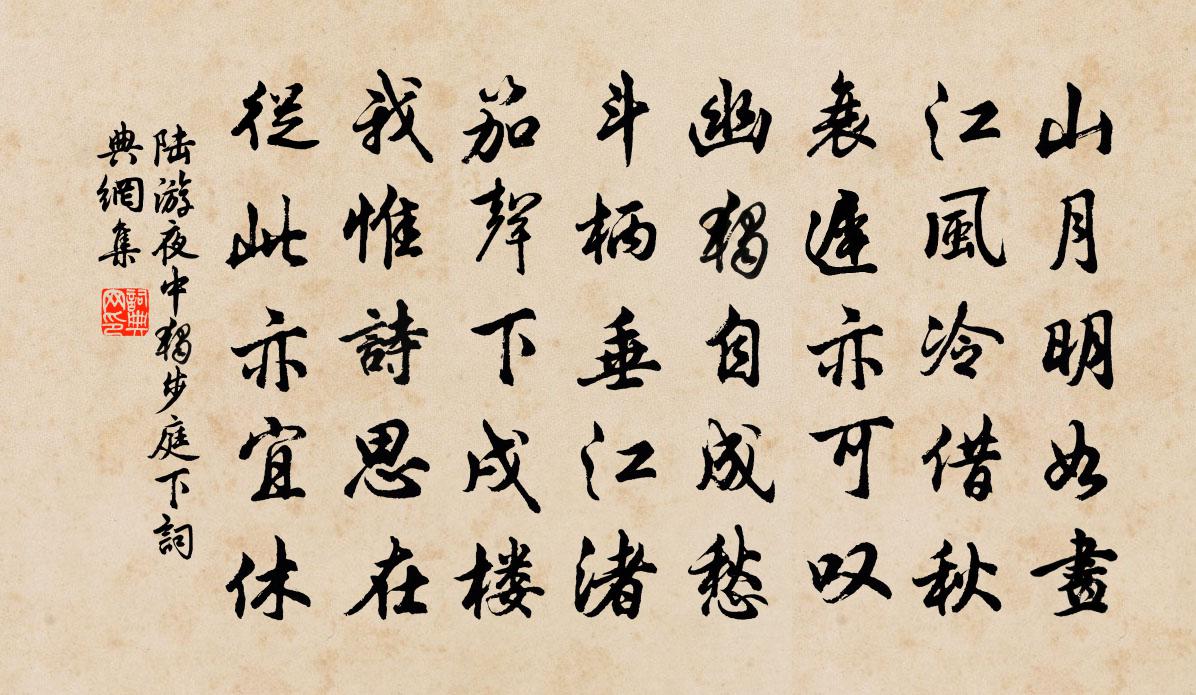 山月明如晝
江風冷借秋
衰遲亦可叹
幽獨自成愁
斗柄垂江渚
笳聲下戍楼
我惟詩思在
從此亦宜休
陆游夜中獨步庭下詞
典網集
詞典
网印